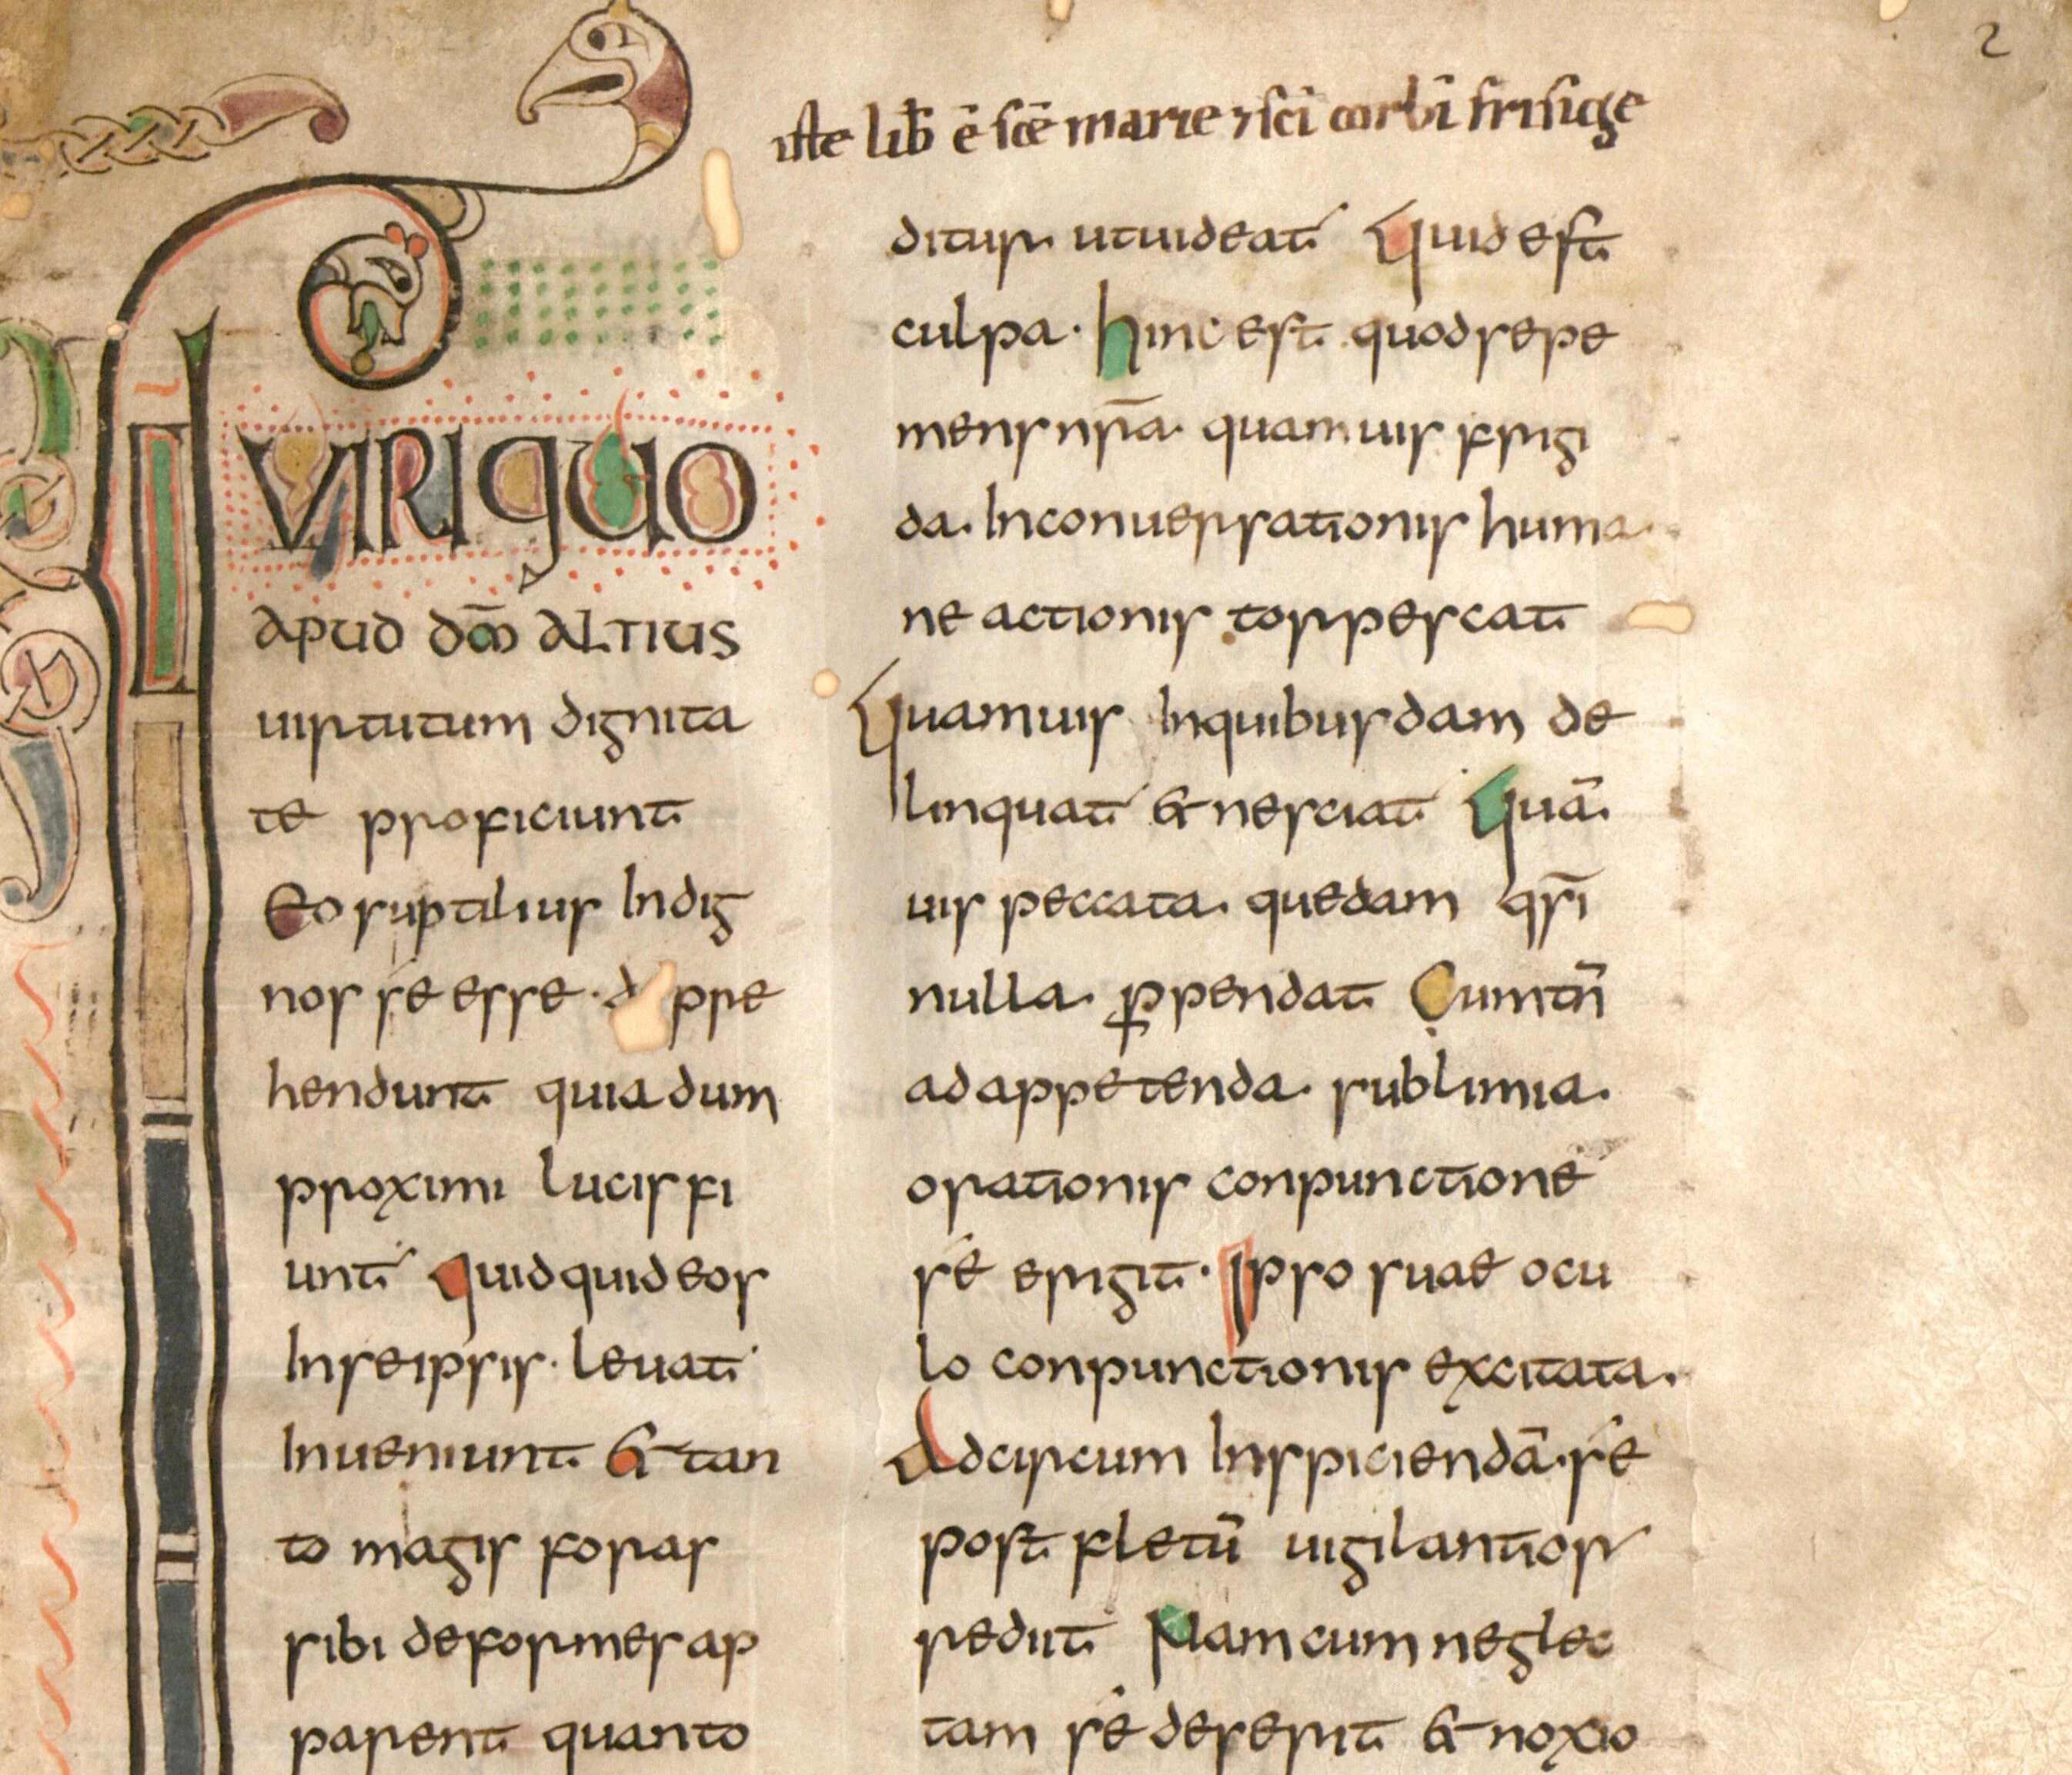 2
iste lib̄ ē sc̄e marie ⁊ sc̄i corbī frisīge
IUSTI VIRI QUO
APUD dm̄ ALTIUS
uirtutum dignita
te proficiunt
Eo suptilius Indig
nos se esse · d ppre
hendunt quia dum
proximi lucis fi
unt Quidquid eos
Inseipsis · leuat
Inueniunt & tan
to magis foras
sibi deformes ap
parent quanto
ditur utuideat Quid est
culpa · hinc est quod sepe
mens nr̄a quamuis frigi
da. Inconuersationis huma
ne actionis torpescat
Quamuis Inquibusdam de
linquat & nesciat Quā
uis peccata quedam qs̄i
nulla ꝑpendat Cum tn̄
ad appetenda sublimia.
orationis conpunctione
se erigit · Ipso suae ocu
lo conpunctionis excitata.
Adcircum Inspiciendā · se
post fletū uigilantior
rediit Nam cum neglec
tam se deserit & noxio